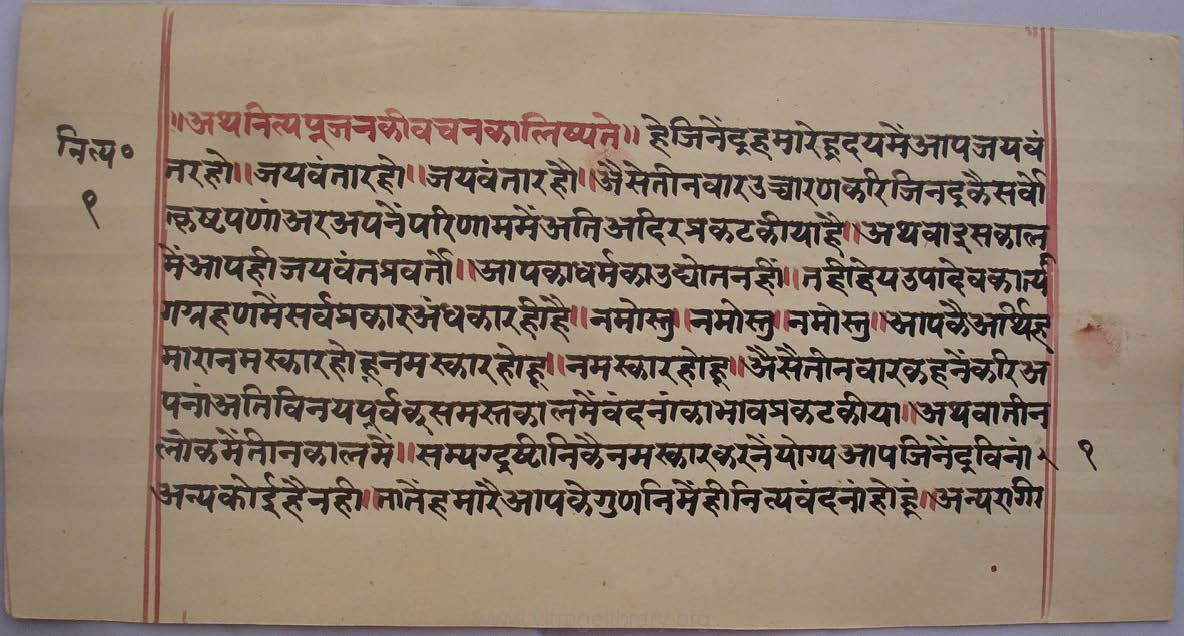 ॥अथनित्यपूजनकीवचनकालिष्यते॥ हेजिनेंद्रहमारेहृदयमैंआपजयवं
नित्य०
१
तरहौ॥जयवंतारहो॥जयवंतारहौ॥अैसेतीनवारउच्चारणकरिजिनद्रकैसर्वो
त्कृष्टपणांअरअपनेंपरिणाममेंअतिअदिरप्रकटकीयाहै॥अथवाइसकाल
मेंआपहीजयवंतप्रवर्तो॥आपकाधर्मकाउद्योतनहीं॥तहीहेयउपादेवकात्य
गग्रहणमेंसर्वप्रकारअंधकारहीहै॥नमोस्तु॥नमोस्तु॥नमोस्तु॥आपकैअर्थिह
मारानमस्कारहोहूनमस्कारहोहू॥नमस्कारहोहू॥अैसैतीनवारकहनेंकरिअ
पनांअतिविनयपूर्वकुसमस्तकालमेंवंदनांकाभावप्रकटकीया॥अथवातीन
लोकमेंतीनकालमैं॥सम्यग्दृष्टीनिकैनमस्कारकरनेंयोग्यआपजिनेंद्रविनां
१
अन्यकोईहैनही॥तातेंहमारैआपकेगुणनिमेंहीनित्यवंदनांहोहूं॥अन्यरागी